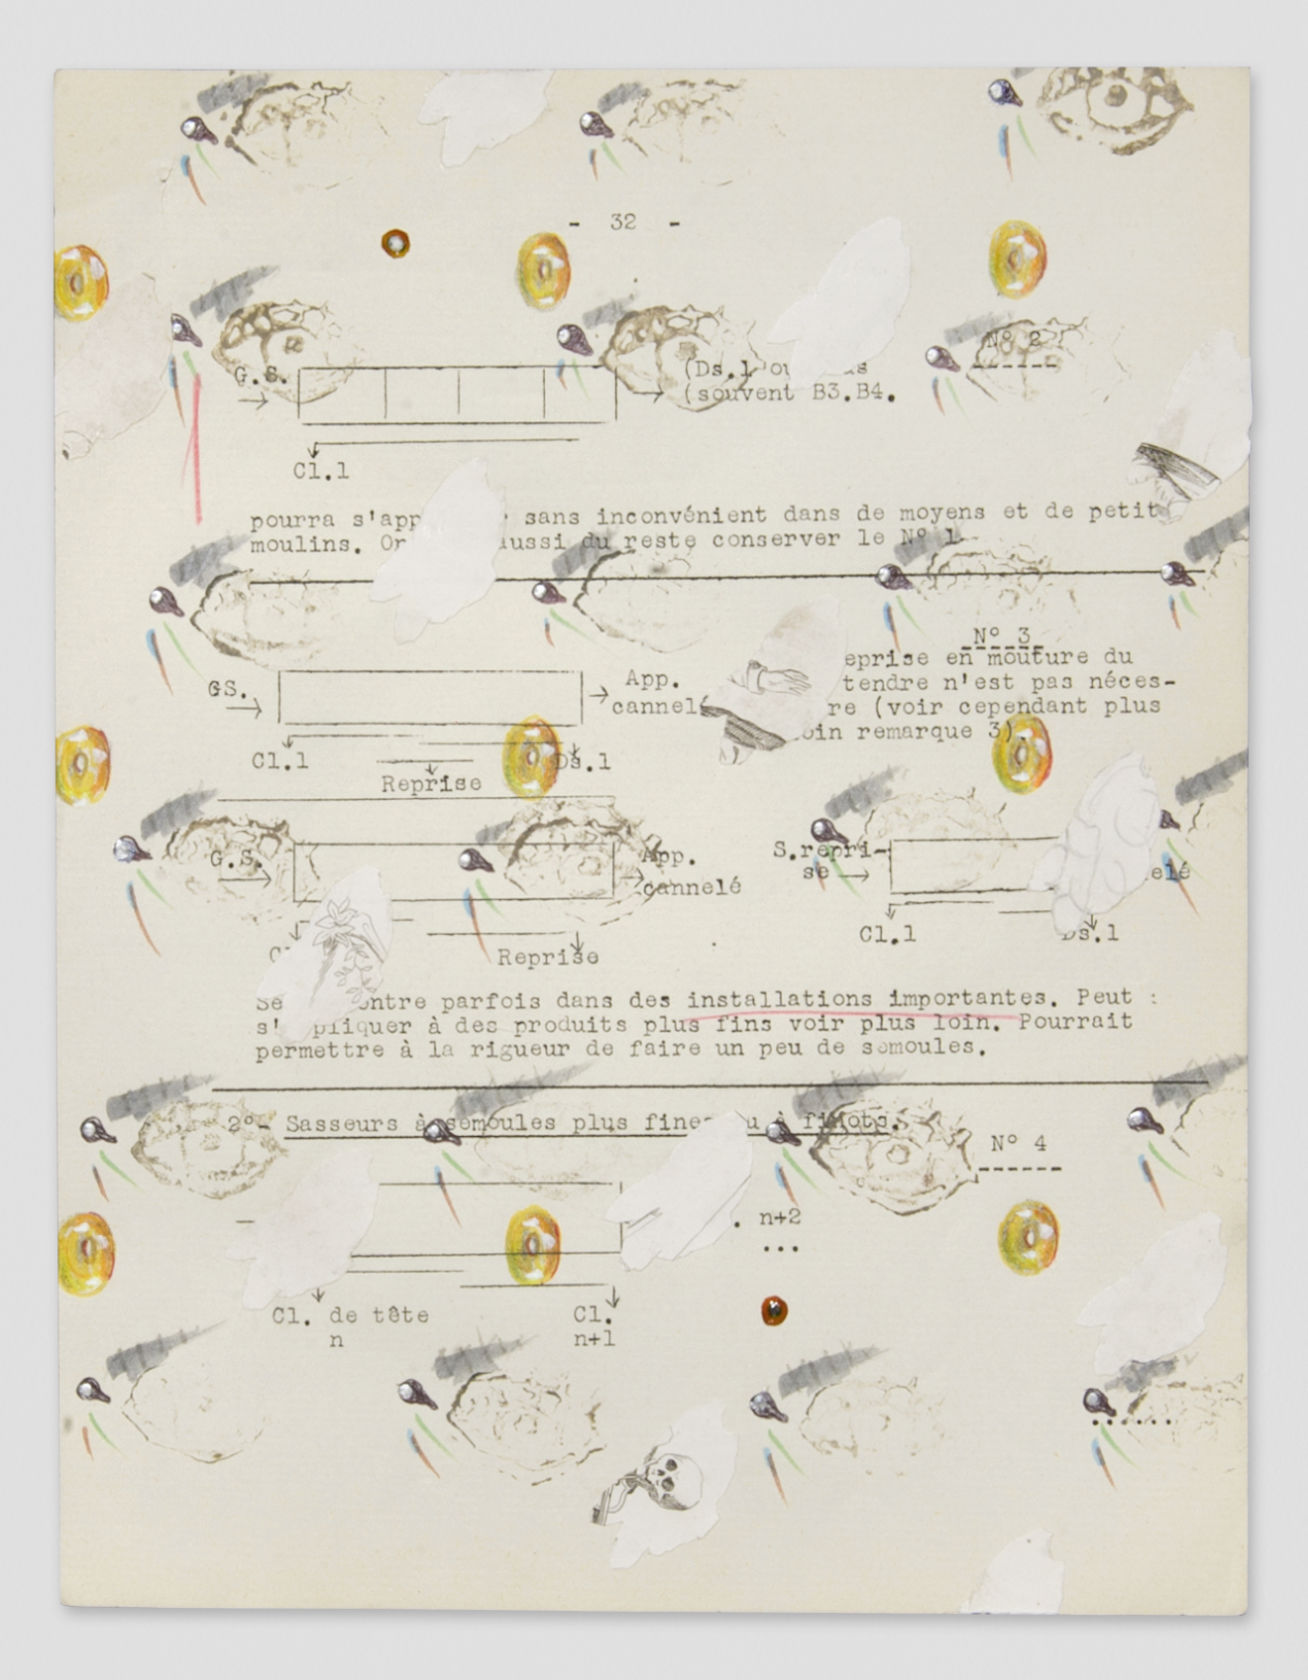 - 32 -
Nº 2
G.S.
(Ds.1
(souvent B3.B4.
Cl.1
pourra s'app sans inconvénient dans de moyens et de petit
moulins. aussi du reste conserver le Nº 1
Nº 3
eprise en mouture du
GS. App. tendre n'est pas néces-
cannelé re (voir cependant plus
oin remarque 3)
Cl.1 Ds.1
Reprise
G.S. App.
cannelé
S.repri-
se elé
Cl.1 Ds.1
Reprise
Se ontre parfois dans des installations importantes. Peut :
s' pliquer à des produits plus fins voir plus loin. Pourrait
permettre à la rigueur de faire un peu de semoules.
2º- Sasseurs à semoules plus fines u à finots.
Nº 4
. n+2
...
Cl. de tête Cl.
n n+1
.......